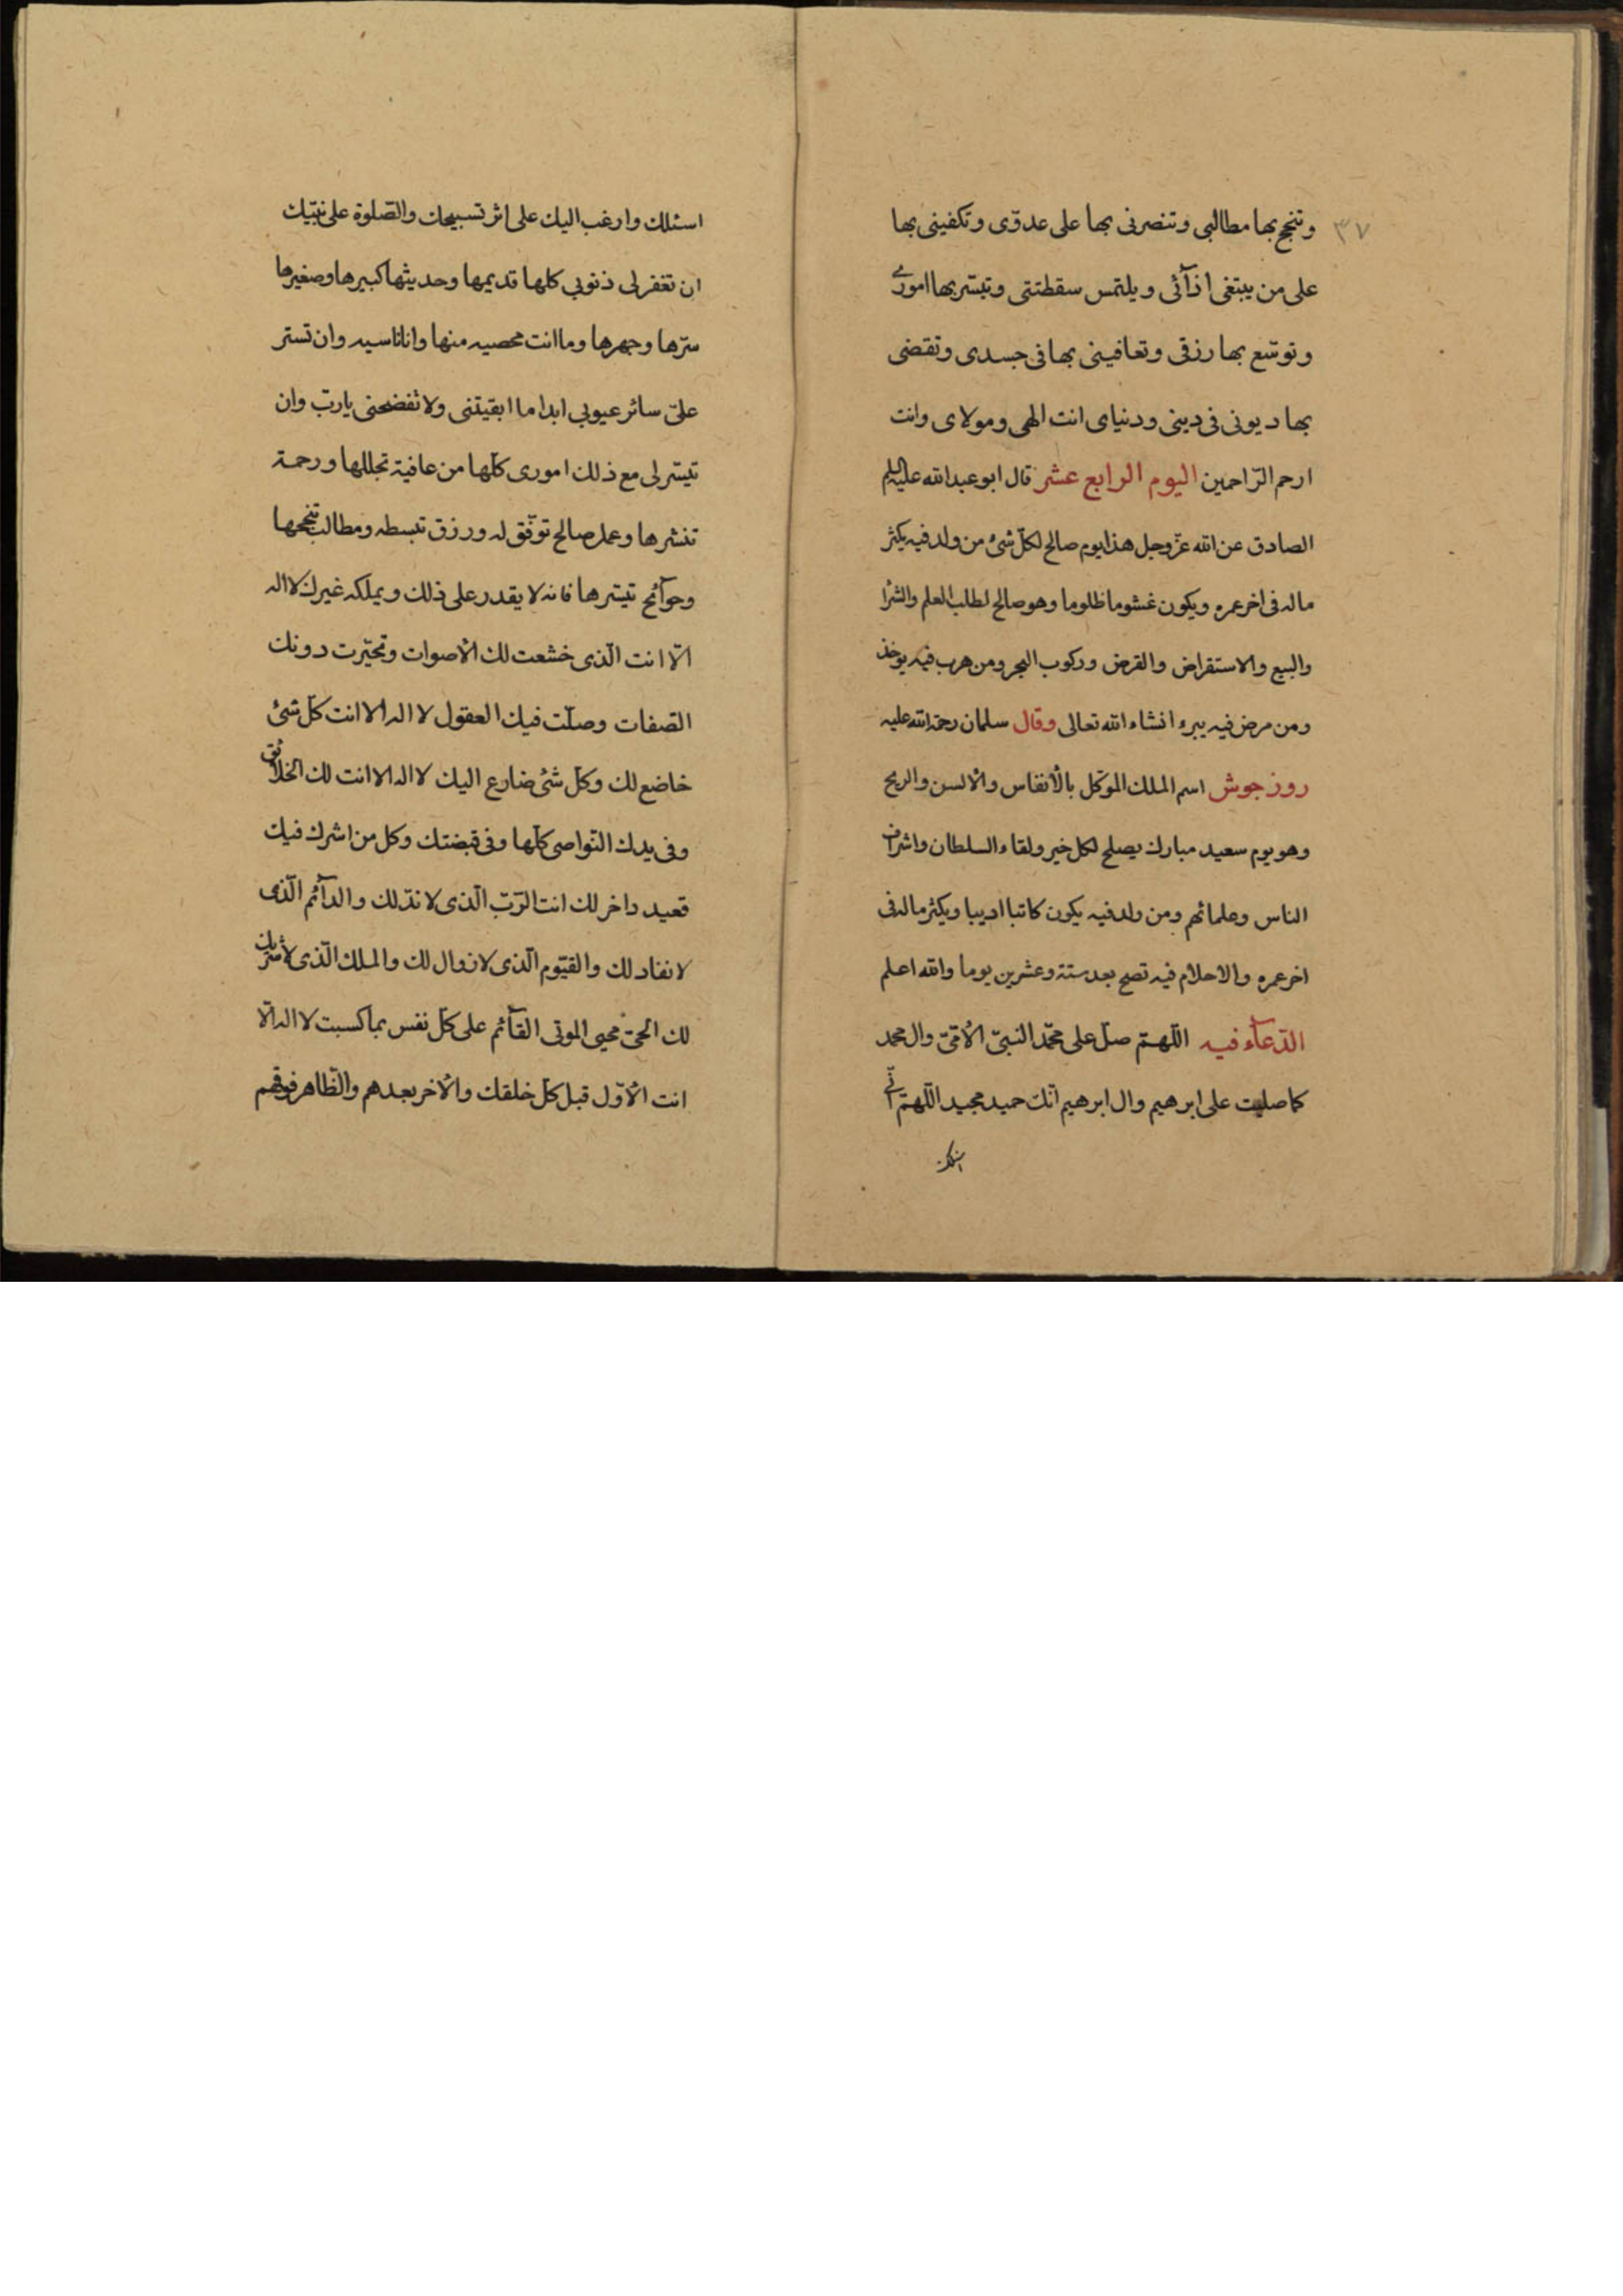 ٣٧
وتنجح بها مطالبى وتنصرنى بها على عدوّى وتكفينى بها
على من يبتغى اذآئى ويلتمس سقطتتى وتيسّر بها امورى
وتوسّع بها رزقى وتعافينى بها فى جسدى وتقضى
بها ديونى فى دينى ودنياى انت الهى ومولاى وانت
ارحم الرّاحمين اليوم الرابع عشر قال ابو عبد الله عليه السلم
الصادق عن الله عزّ وجل هذا يوم صالح لكلّ شىء من ولد فيه يكثر
ماله فى اخر عمره ويكون غشوما ظلوما وهو صالح لطلب العلم والشرآ
والبيع والاستقراض والقرض وركوب البحر ومن هرب فيه يوخذ
ومن مرض فيه يبرء انشاء الله تعالى وقال سلمان رحمة الله عليه
روز جوش اسم الملك الموكّل بالأنفاس والألسن والريح
وهو يوم سعيد مبارك يصلح لكل خير ولقاء السلطان واشراف
الناس وعلمائهم ومن ولد فيه يكون كاتبا اديبا ويكثر ماله فى
اخر عمره والاحلام فيه تصح بعد ستة وعشرين يوما والله اعلم
الدّعآء فيه اللّهمّ صلّ على محمّد النبىّ الأمّىّ وال محمد
كما صليت على ابرهيم وال ابرهيم انّك حميد مجيد اللّهمّ انّى
اسئلك
اسئلك وارغب اليك على اثر تسبيحك والصّلوة على نبيّك
ان تغفر لى ذنوبى كلها قديمها وحديثها كبيرها وصغيرها
سرّها وجهرها وما انت محصيه منها وانا ناسيه وان تستر
علىّ سائر عيوبى ابدا ما ابقيتنى ولا تفضحنى يا ربّ وان
تيسّر لى مع ذلك امورى كلّها من عافية تجللها ورحمة
تنشرها وعمل صالح توفّق له ورزق تبسطه ومطالب تنجحها
وحوآئج تيسّرها فانه لا يقدر على ذلك ويملكه غيرك لا اله
الّا انت الّذى خشعت لك الأصوات وتحيّرت دونك
الصّفات وضلّت فيك العقول لا اله الا انت كلّ شىء
خاضع لك وكلّ شىء ضارع اليك لا اله الا انت لك الخلائق
وفى يدك النّواصى كلّها وفى قبضتك وكل من اشرك فيك
فعبد داخر لك انت الرّبّ الّذى لا ندّ لك والدآئم الّذى
لا نفاد لك والقيّوم الّذى لا زوال لك والملك الّذى لا شريك
لك الحىّ محيى الموتى القآئم على كلّ نفس بما كسبت لا اله الّا
انت الأوّل قبل كلّ خلقك والأخر بعدهم والظّاهر فوقهم